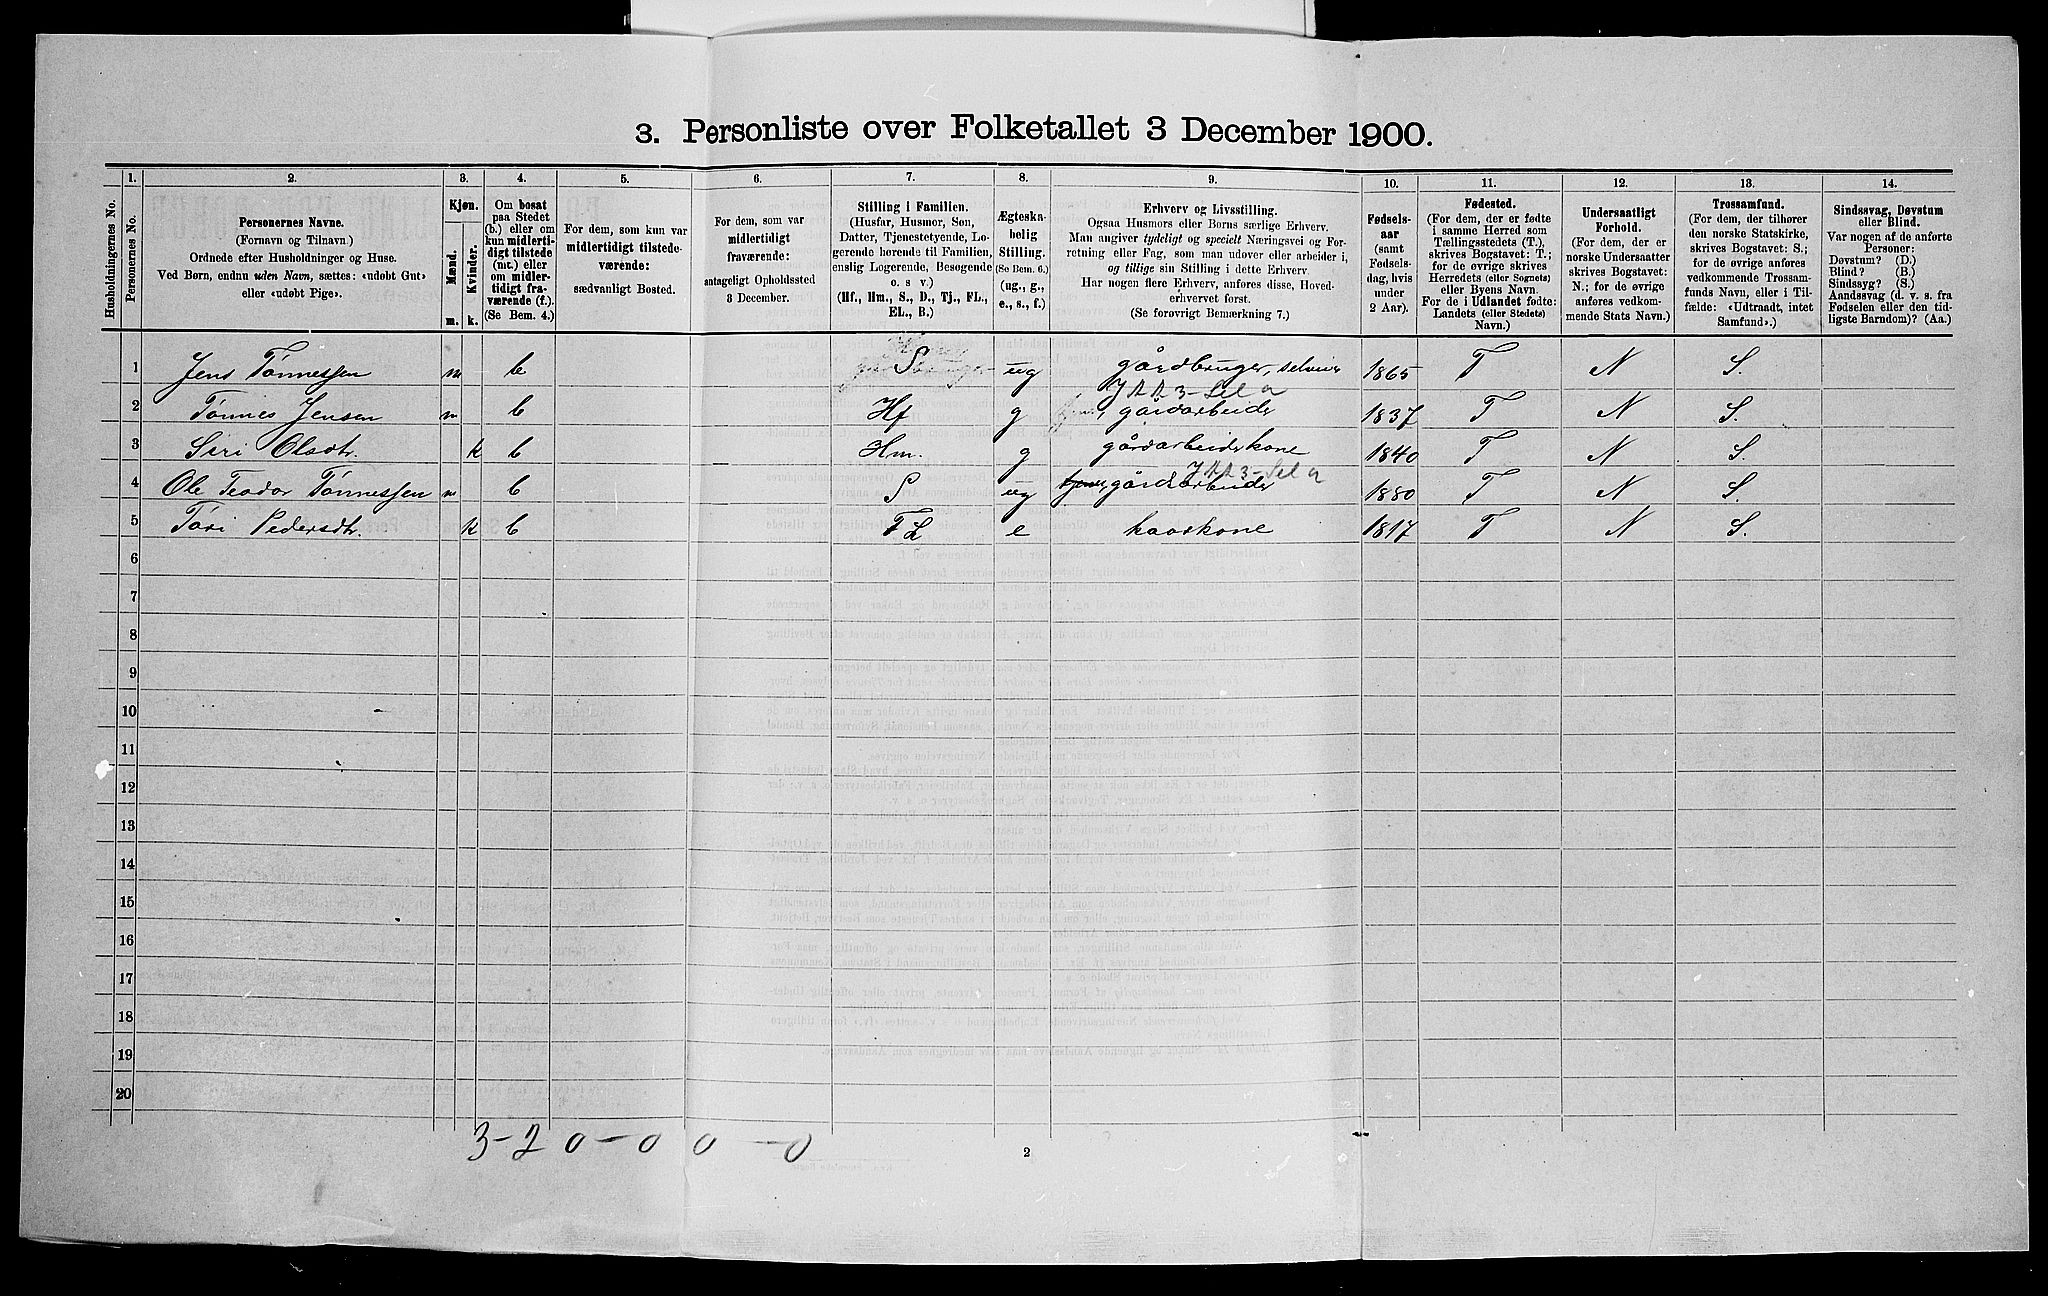 3. Personliste over Folketallet 3 December 1900.
1. 2. 3. 4. 5. 6. 7. 8. 9. 10. 11. 12. 13. 14.
Husholdningernes No.
Personernes No.
Personernes Navne.
(Fornavn og Tilnavn.)
Ordnede efter Husholdninger og Huse.
Ved Børn, endnu uden Navn, sættes: «udøbt Gut»
eller «udøbt Pige».
Kjøn.
Mænd.
Kvinder.
m. k.
Om bosat
paa Stedet
(b.) eller om
kun midlerti-
digt tilstede
(mt.) eller
om midler-
tidigt fra-
værende (f.).
(Se Bem. 4.)
For dem, som kun var
midlertidigt tilstede-
værende:
sædvanligt Bosted.
For dem, som var
midlertidigt
fraværende:
antageligt Opholdssted
3 December.
Stilling i Familien.
(Husfar, Husmor, Søn,
Datter, Tjenestetyende, Lo-
gerende hørende til Familien,
enslig Logerende, Besøgende
o. s v.)
(Hf., Hm., S., D., Tj., FL.,
EL., B.)
Ægteska-
belig
Stilling.
(Se Bem. 6.)
(ug., g.,
e., s., f.)
Erhverv og Livsstilling.
Ogsaa Husmors eller Børns særlige Erhverv.
Man angiver tydeligt og specielt Næringsvei og For-
retning eller Fag, som man udøver eller arbeider i,
og tillige sin Stilling i dette Erhverv.
Har nogen flere Erhverv, anføres disse, Hoved-
erhvervet først.
(Se forøvrigt Bemærkning 7.)
Fødsels-
aar
(samt
Fødsels-
dag, hvis
under
2 Aar).
Fødested.
(For dem, der er fødte
i samme Herred som
Tællingsstedets (T.),
skrives Bogstavet: T.;
for de øvrige skrives
Herredets (eller Sognets)
eller Byens Navn.
For de i Udlandet fødte:
Landets (eller Stedets)
Navn.)
Undersaatligt
Forhold.
(For dem, der er
norske Undersaatter
skrives Bogstavet:
N.; for de øvrige
anføres vedkom-
mende Stats Navn.)
Trossamfund.
(For dem, der tilhører
den norske Statskirke,
skrives Bogstavet: S.;
for de øvrige anføres
vedkommende Trossam-
funds Navn, eller i Til-
fælde: «Udtraadt, intet
Samfund».)
Sindssvag, Døvstum
eller Blind.
Var nogen af de anførte
Personer:
Døvstum? (D.)
Blind? (B.)
Sindssyg? (S.)
Aandssvag (d. v. s. fra
Fødselen eller den tid-
ligste Barndom)? (Aa.)
1 Jens Tønnessen m b S ug gårdbruger, selveier 1865 T N S.
2 Tønnes Jensen m b Hf g gårdarbeide 1837 T N S.
3 Siri Olsdtr. k b Hm. g gårdarbeidskone 1840 T N S.
4 Ole Teodor Tønnessen m b S ug gårdsarbeide 1880 T N S.
5 Tøri Pedersdtr. k b FL e kaarkone 1817 T N S.
6
7
8
9
10
11
12
13
14
15
16
17
18
19
20
3-2 0-0 0-0
2